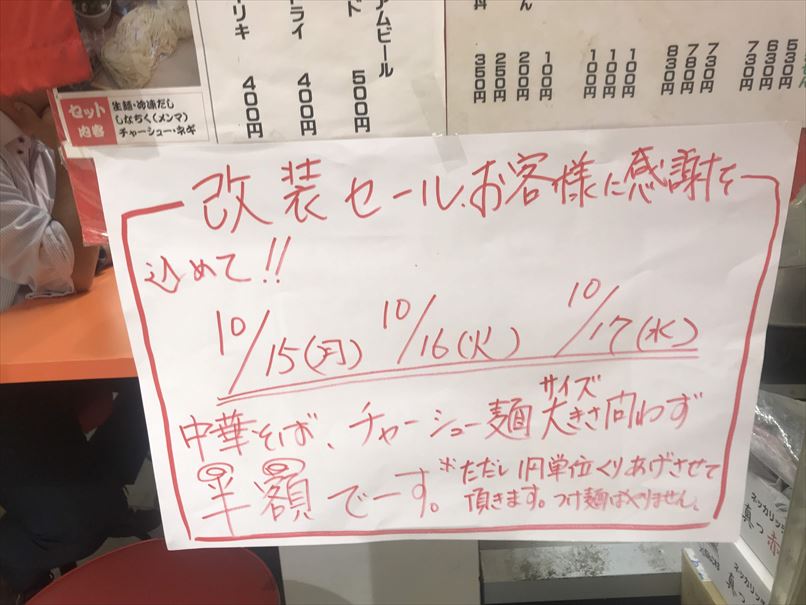 リキ 400円
ライ 400円
ド 500円
アムビール
350円
250円
200円
100円
100円
100円
100円
830円
780円
730円
730円
630円
セット内容
生麺・冷凍だし
しなちく(メンマ)
チャーシュー・ネギ
改装セール、お客様に感謝を
込めて!!
10/15(月) 10/16(火) 10/17(水)
サイズ
中華そば、チャーシュー麺 大きさ問わず
半額でーす。
※ただし1円単位くりあげさせて
頂きます。つけ麺はやりません。
ネッカリッチ
真つ赤